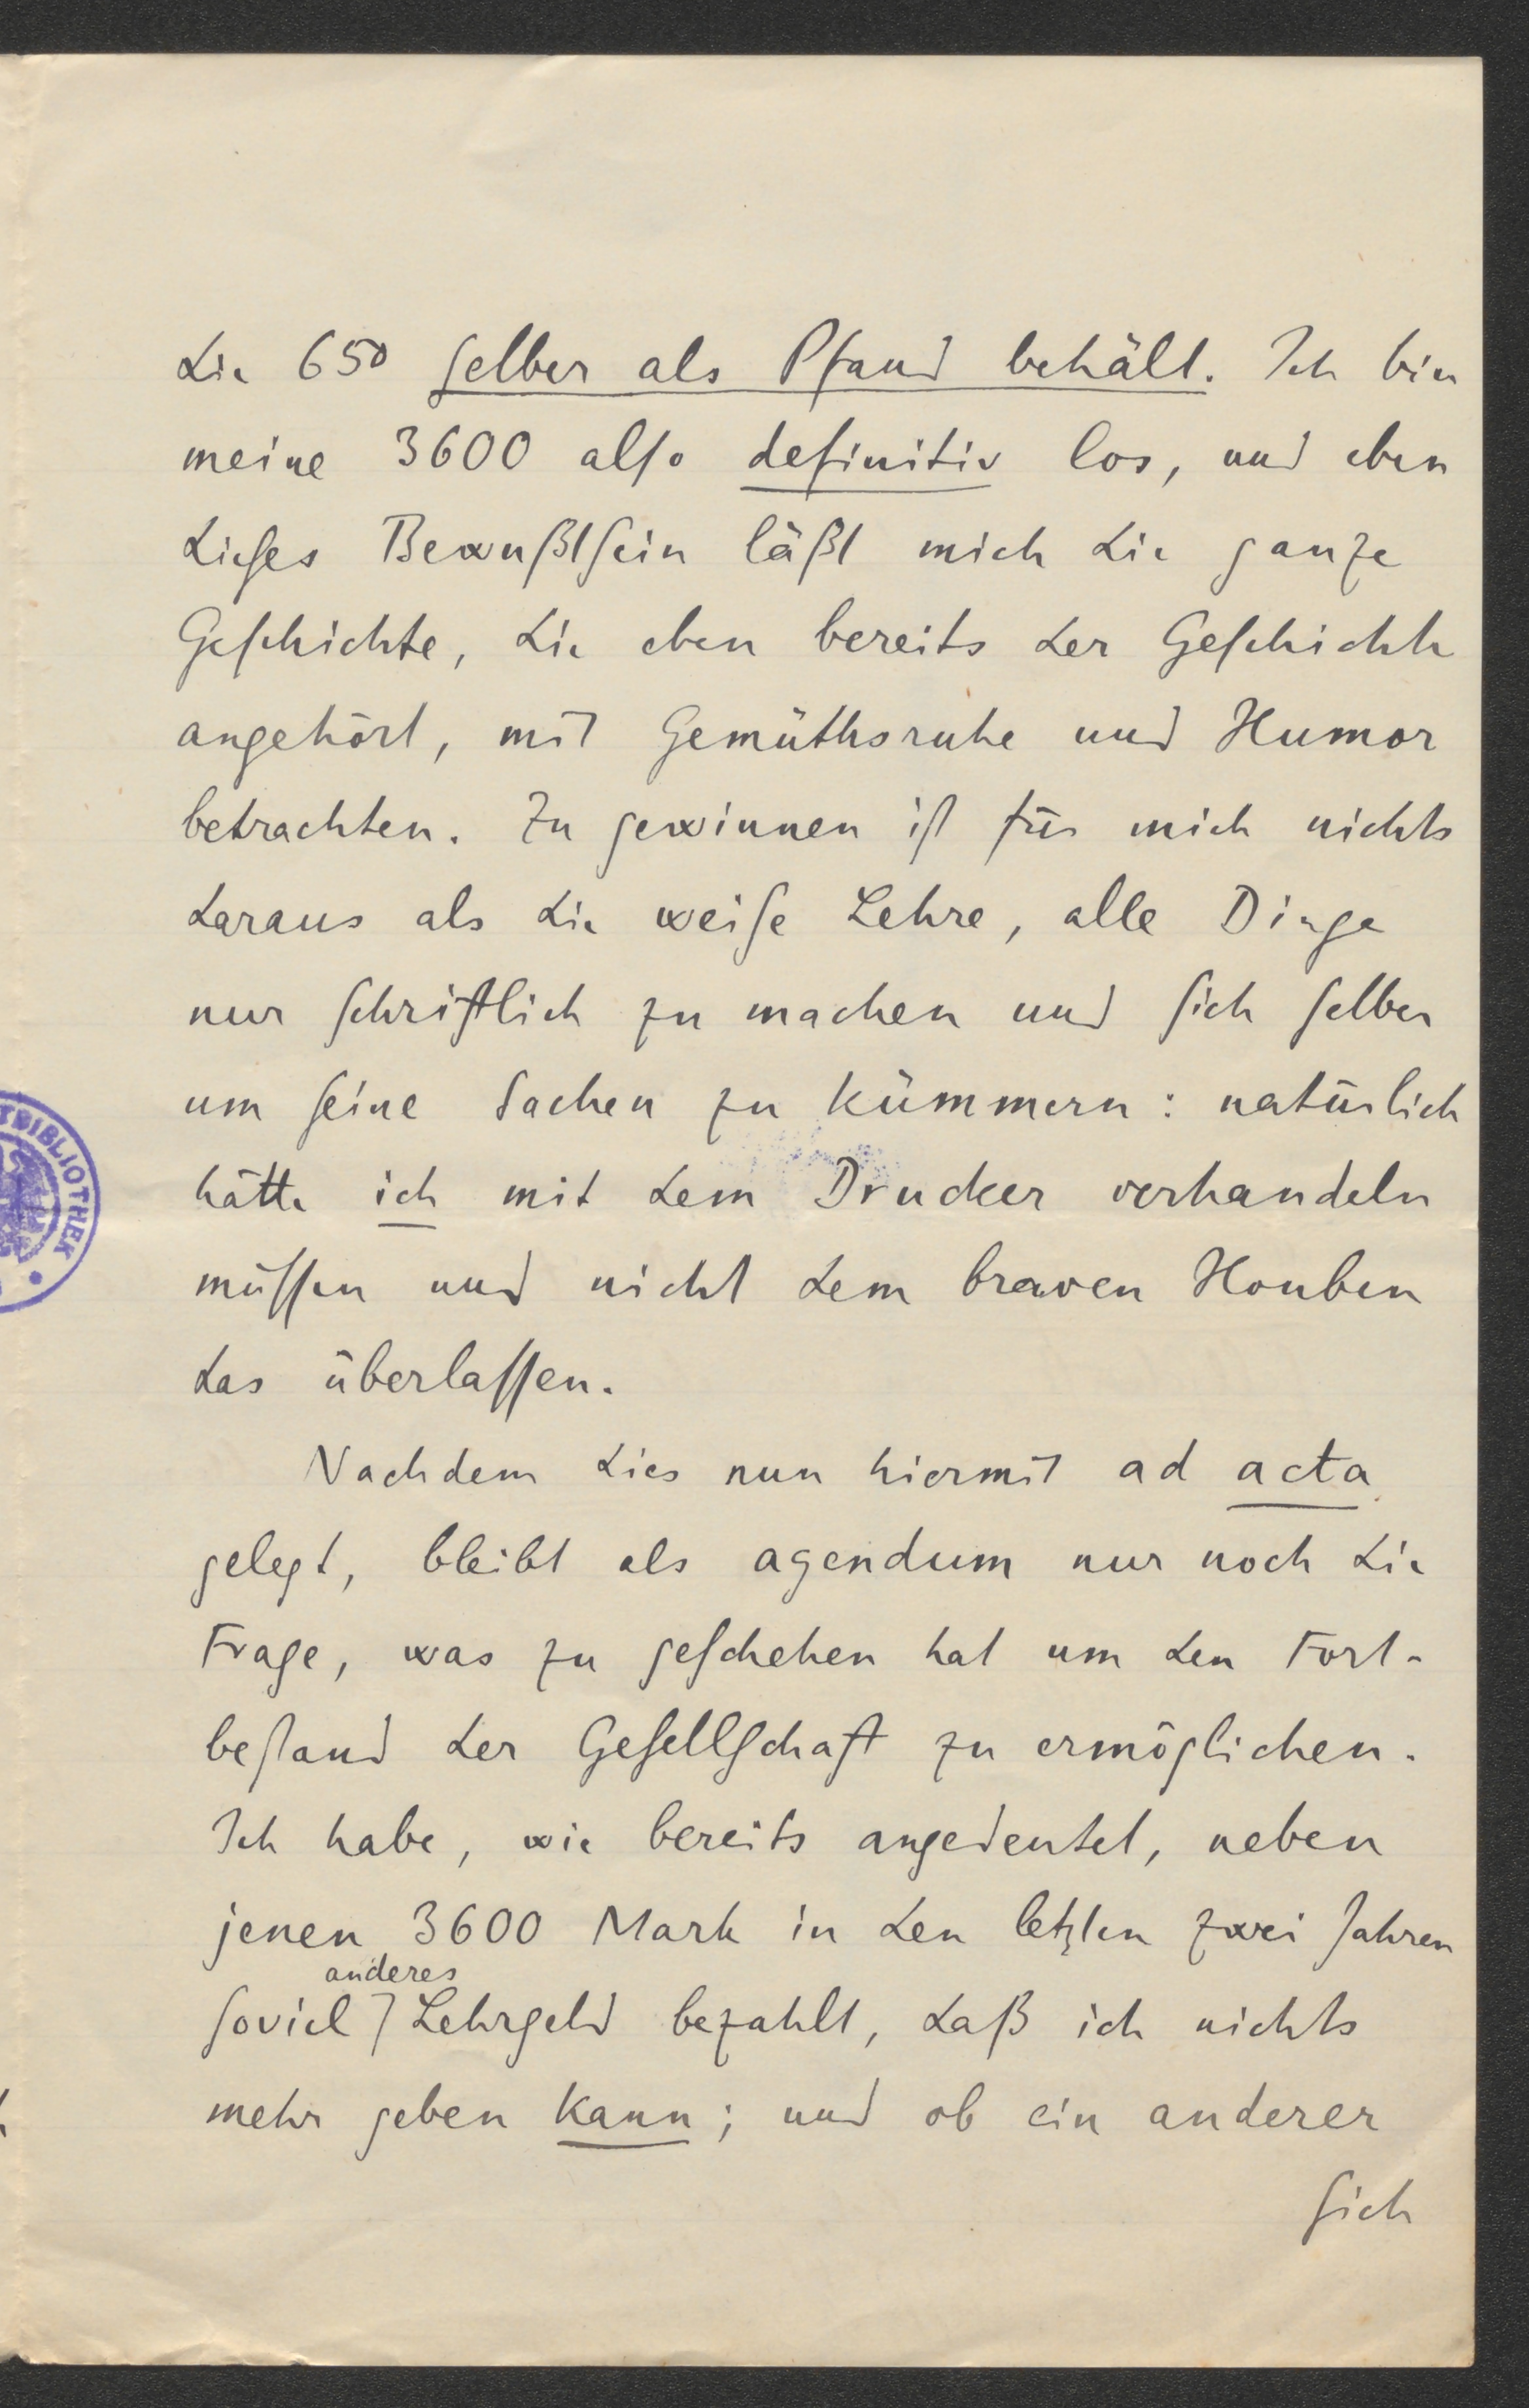 die 650 selber als Pfand behält. Ich bin
meine 3600 also definitiv los, und eben
dieses Bewußtsein läßt mich die ganze
Geschichte, die eben bereits der Geschichte
angehört, mit Gemüthsruhe und Humor
betrachten. Zu gewinnen ist für mich nichts
daraus als die weise Lehre, alle Dinge
nur schriftlich zu machen und sich selber
um seine Sachen zu kümmern: natürlich
hätte ich mit dem Drucker verhandeln
müssen und nicht dem braven Houben
das überlassen.
Nachdem dies nun hiermit ad acta
gelegt, bleibt als agendum nur noch die
Frage, was zu geschehen hat um den Fort-
bestand der Gesellschaft zu ermöglichen.
Ich habe, wie bereits angedeutet, neben
jenen 3600 Mark in den letzten zwei Jahren
anderes
soviel Lehrgeld bezahlt, daß ich nichts
mehr geben kann; und ob ein anderer
sich
TBIBLIOTHEK